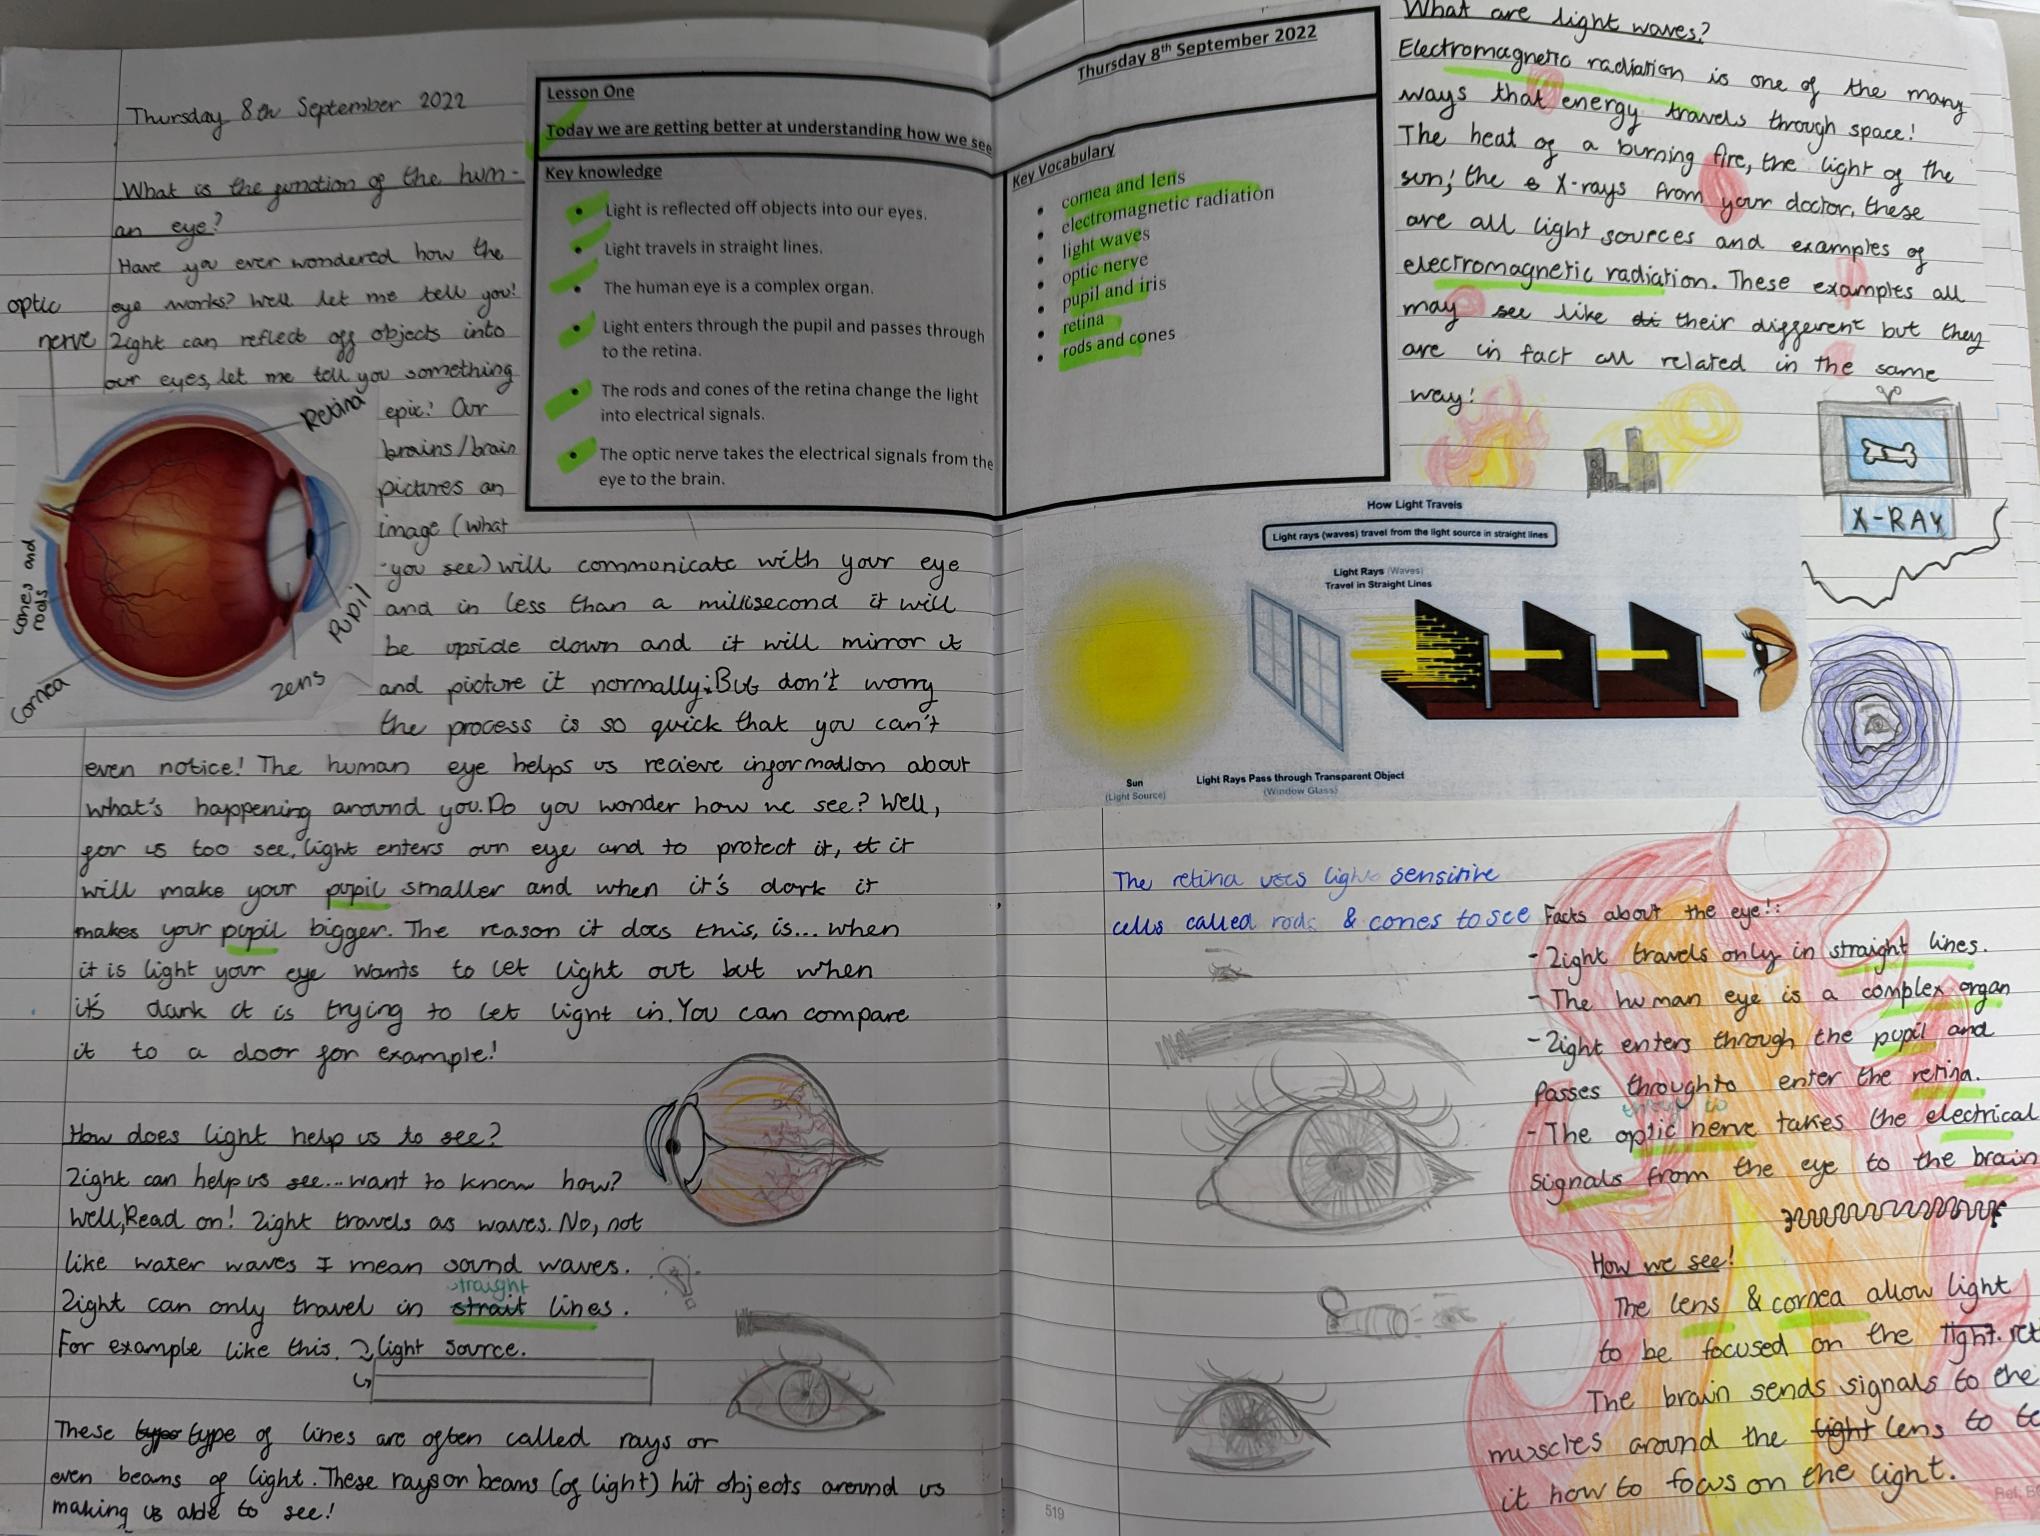 Thursday 8th September 2022
What is the function of the hum-
an eye?
Have you ever wondered how the
eye works? Well let me tell you!
Light can reflect off objects into
our eyes, let me tell you something
epic! Our
brains/brain
pictures an
image (what
you see) will communicate with your eye
and in less than a millisecond it will
be upside down and it will mirror it
and picture it normally; But don't worry
the process is so quick that you can't
even notice! The human eye helps us recieve information about
what's happening around you. Do you wonder how we see? Well,
for us too see, light enters our eye and to protect it, it
will make your pupil smaller and when it's dark it
makes your pupil bigger. The reason it does this, is... when
it is light your eye wants to let light out but when
it's dark it is trying to let light in. You can compare
it to a door for example!
optic
nerve
Retina
cones and
rods
Pupil
Lens
Cornea
How does light help us to see?
Light can help us see... want to know how?
Well, Read on! Light travels as waves. No, not
like water waves I mean sound waves.
straight
Light can only travel in strait lines.
For example like this. light source.
These type type of lines are often called rays or
even beams of light. These rays or beams (of light) hit objects around us
making us able to see!
Lesson One
Today we are getting better at understanding how we see
Key knowledge
• Light is reflected off objects into our eyes.
• Light travels in straight lines.
• The human eye is a complex organ.
• Light enters through the pupil and passes through
to the retina.
• The rods and cones of the retina change the light
into electrical signals.
• The optic nerve takes the electrical signals from the
eye to the brain.
Thursday 8th September 2022
Key Vocabulary
• cornea and lens
• electromagnetic radiation
• light waves
• optic nerve
• pupil and iris
• retina
• rods and cones
What are light waves?
Electromagnetic radiation is one of the many
ways that energy travels through space!
The heat of a burning fire, the light of the
sun, the X-rays from your doctor, these
are all light sources and examples of
electromagnetic radiation. These examples all
may see like di their different but they
are in fact all related in the same
way!
X-RAY
How Light Travels
Light rays (waves) travel from the light source in straight lines
Light Rays (Waves)
Travel in Straight Lines
Sun
(Light Source)
Light Rays Pass through Transparent Object
(Window Glass)
The retina uses light sensitive
cells called rods & cones to see
Facts about the eye!:
- Light travels only in straight lines.
- The human eye is a complex organ
- Light enters through the pupil and
Passes throughto enter the retina.
through to
- The optic nerve takes the electrical
signals from the eye to the brain
How we see!
The lens & cornea allow light
to be focused on the light. ret
The brain sends signals to the
muscles around the light lens to te
it how to focus on the light.
519